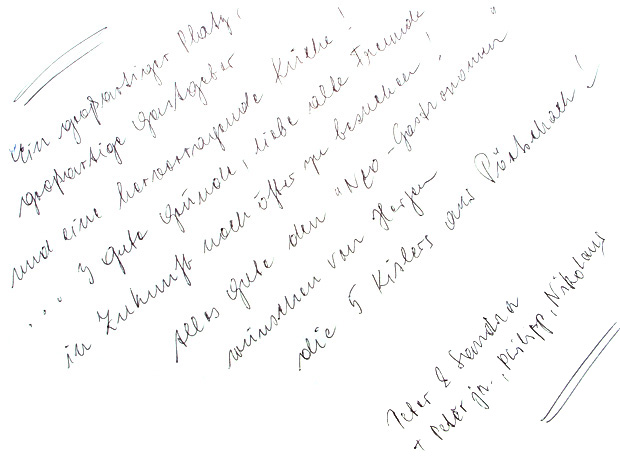 Ein großartiger Platz,
großartige Gastgeber
und eine hervorragende Küche!
... 3 gute Gründe, liebe alte Freunde
in Zukunft noch öfter zu besuchen!
Alles Gute den "Neo-Gastronomen"
wünschen von Herzen
die 5 Kislers aus Pörtschach!
Peter & Sandra
+ Peter jn., Philipp, Nikolaus